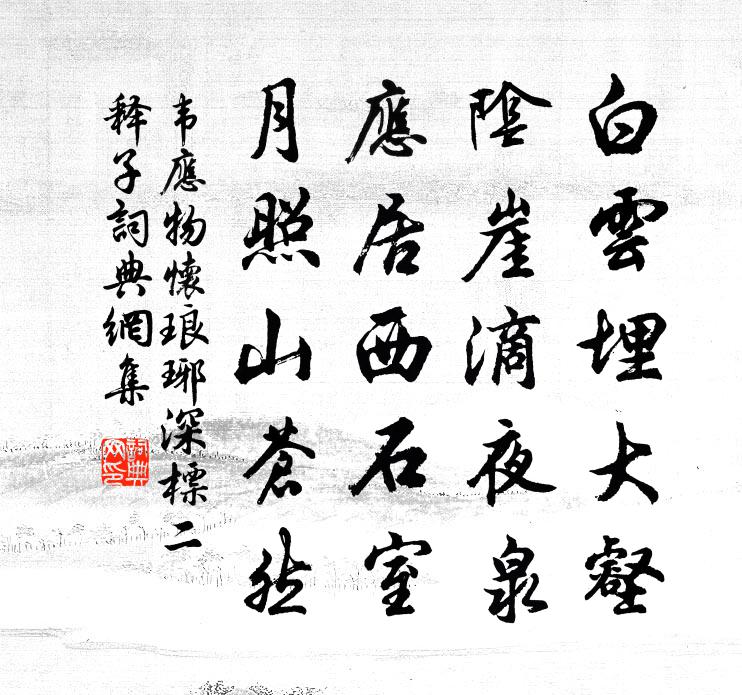 白雲埋大壑
陰崖滴夜泉
應居西石室
月照山蒼然
韦應物懷琅琊深標二
释子詞典網集
詞典
网印